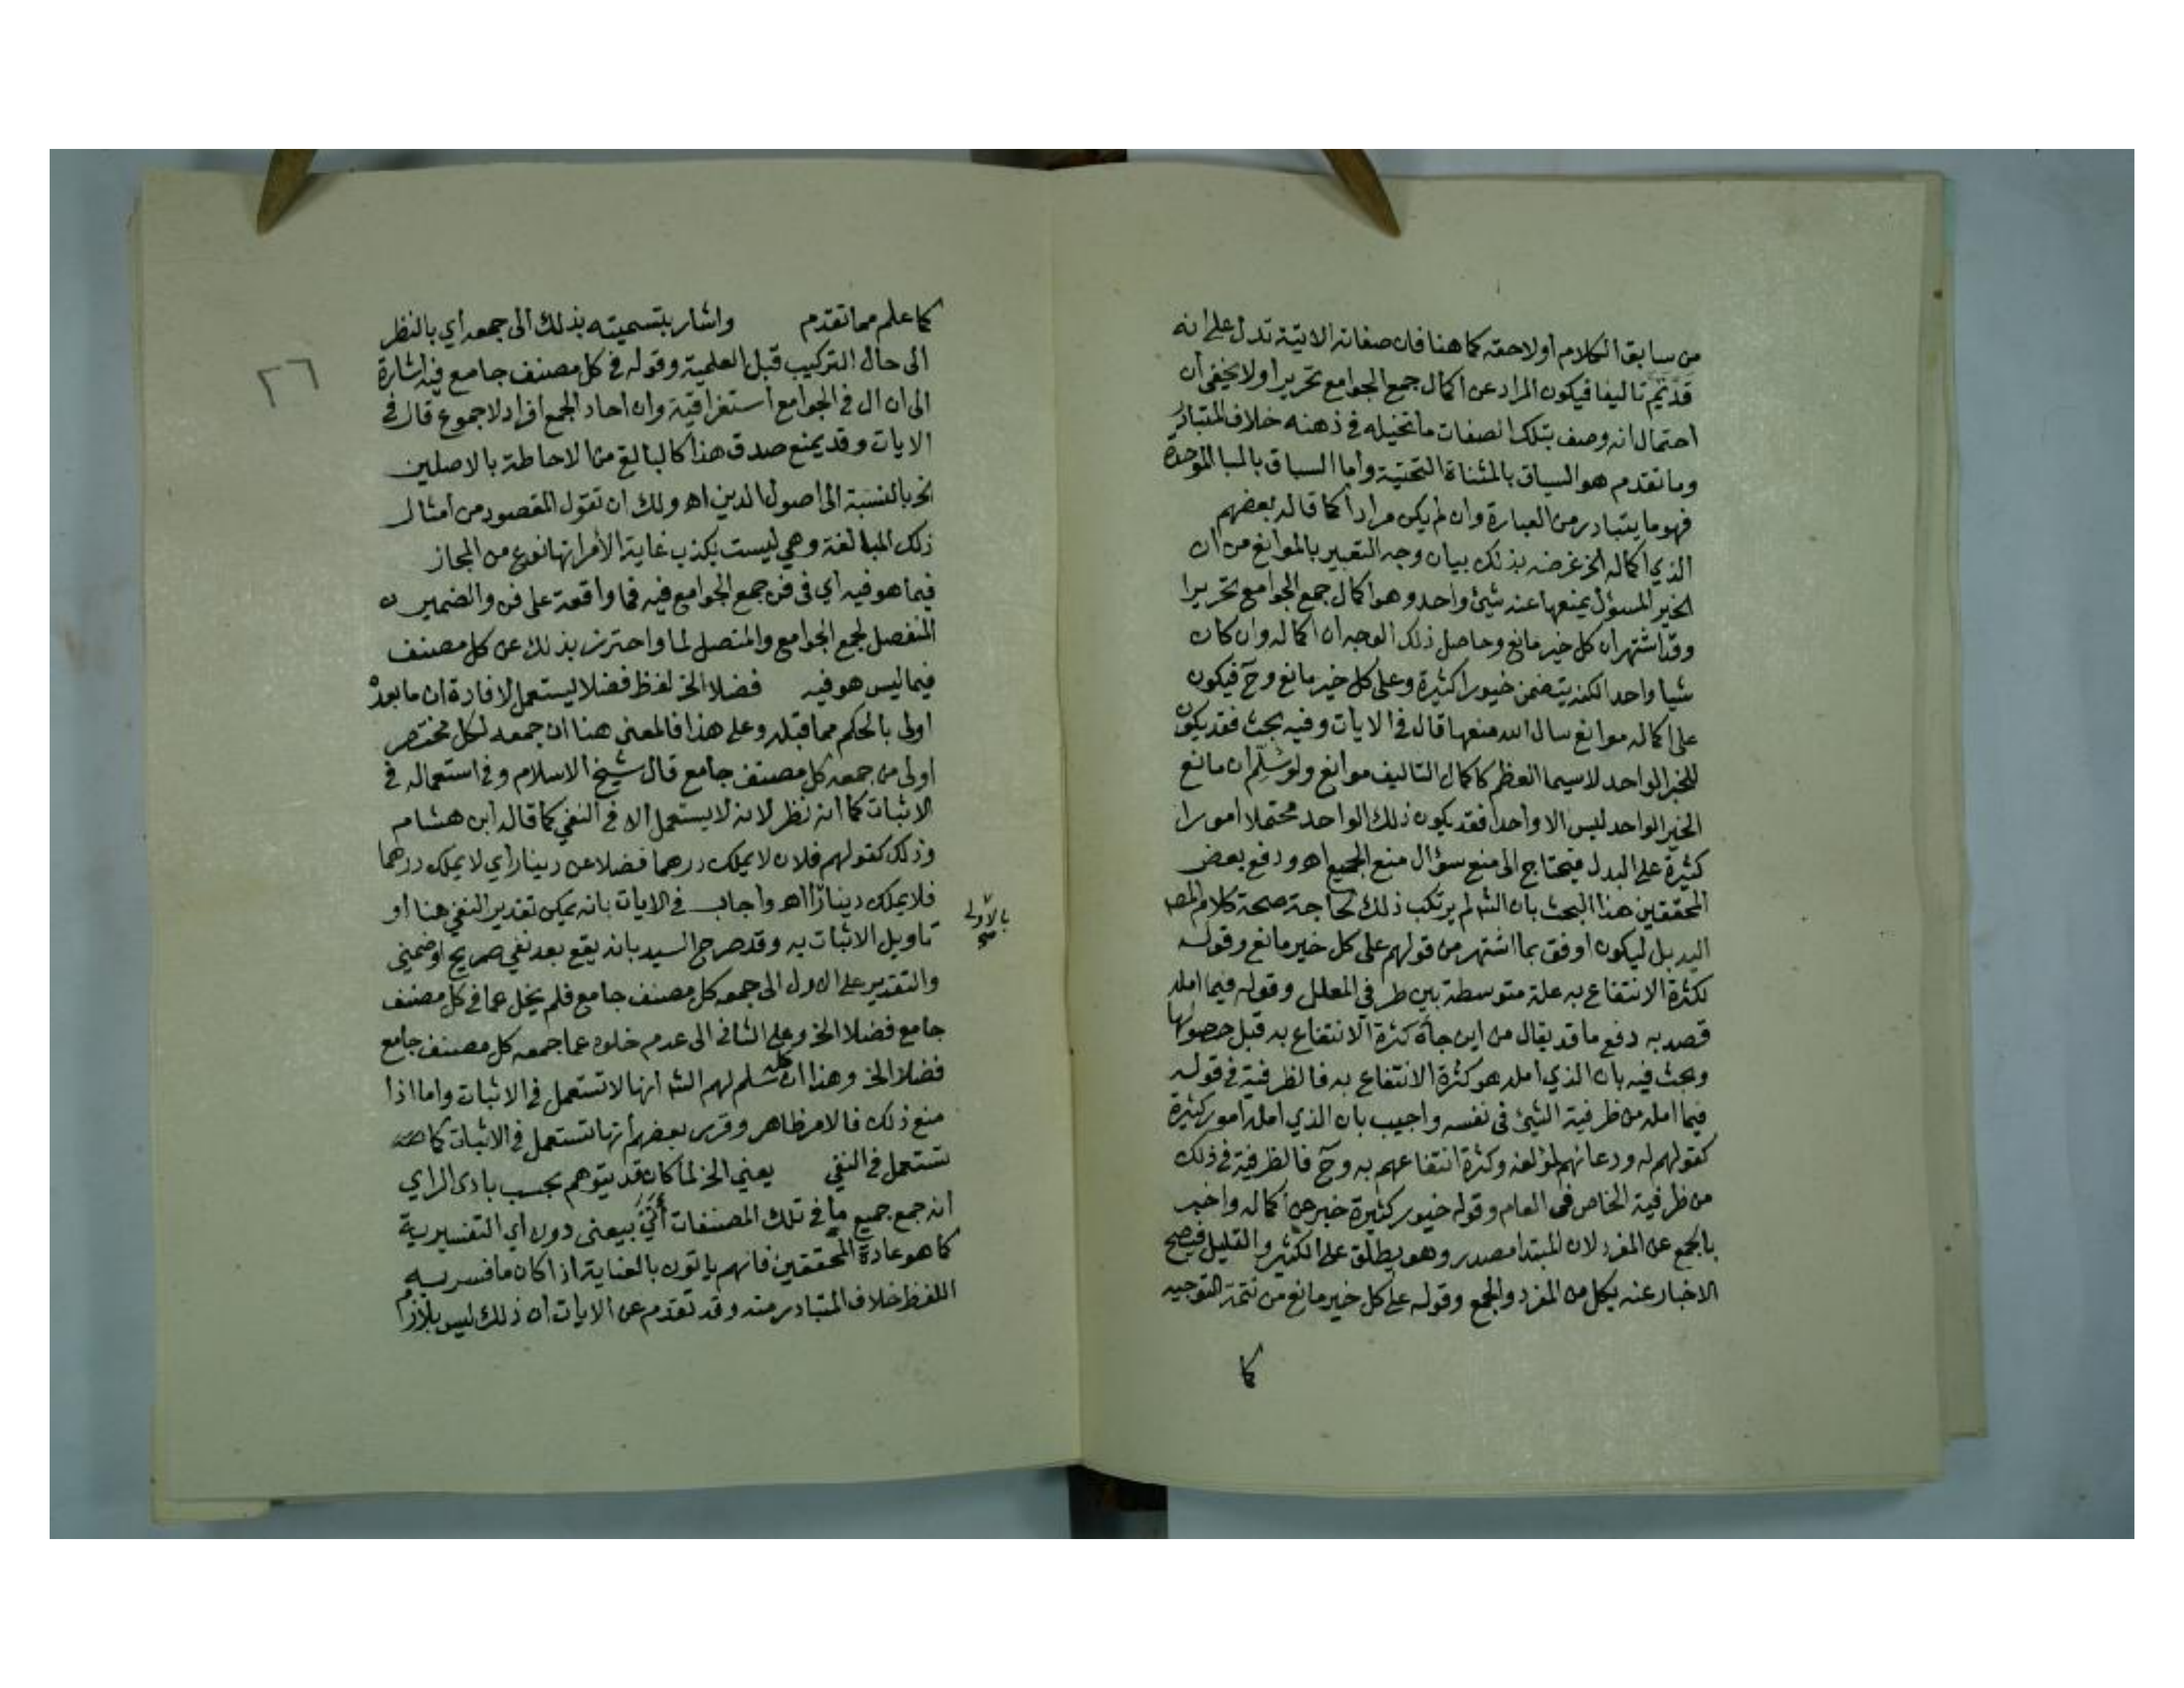 من سابق الكلام او لاحقه كما هنا فان صفاته الاتية تدل على انه
قد تم تاليفا فيكون المراد عن اكمال جمع الجوامع تحريرا ولا يخفى ان
احتمال انه وصف بتلك الصفات ما تخيله في ذهنه خلاف المتبادر
وما تقدم هو السياق بالمثناة التحتية واما السباق بالبا الموحدة
فهو ما يتبادر من العبارة وان لم يكن مرادا كما قاله بعضهم
الذي اكماله الخ غرضه بذلك بيان وجه التعبير بالموانع من ان
الخير المسؤل يمنعها عنه شيئ واحد وهو اكمال جمع الجوامع تحريرا
وقد اشتهر ان كل خير مانع وحاصل ذلك الوجه ان اكماله وان كان
شيا واحد الكنه يتضمن خيورا كثيرة وعلى كل خير مانع وح فيكون
على اكماله موانع سال الله منعها قال في الايات وفيه بحث فقد يكون
للخير الواحد لاسيما العظم كاكمال التاليف موانع ولو سلم ان مانع
الخير الواحد ليس الا واحدا فقد يكون ذلك الواحد محتملا امورا
كثيرة على البدل فيحتاج الى منع سؤال منع الجميع اهـ ودفع بعض
المحققين هذا البحث بان الش لم يرتكب ذلك لحاجة صحة كلام المص
اليه بل ليكون اوفق بما اشتهر من قولهم على كل خير مانع وقوله
لكثرة الانتفاع به علة متوسطة بين طرفي المعلل وقوله فيما امله
قصد به دفع ما قد يقال من اين جأة كثرة الانتفاع به قبل حصولها
وبحث فيه بان الذي امله هو كثرة الانتفاع به فالظرفية في قوله
فيما امله من ظرفية الشيئ في نفسه واجيب بان الذي امله امور كثيرة
كقولهم له ودعائهم لمؤلفه وكثرة انتفاعهم به وح فالظرفية في ذلك
من ظرفية الخاص في العام وقوله خيور كثيرة خبر عن اكماله واخبر
بالجمع عن المفرد لان المبتدا مصدر وهو يطلق على الكثير والقليل فيصح
الاخبار عنه بكل من المفرد والجمع وقوله على كل خير مانع من تتمة التوجيه
كما
٢٦
كما علم مما تقدم واشار بتسميته بذلك الى جمعه اي بالنظر
الى حال التركيب قبل العلمية وقوله في كل مصنف جامع فيه اشارة
الى ان ال في الجوامع استغراقية وان احاد الجمع افراد لا جموع قال في
الايات وقد يمنع صدق هذا كالبالغ من الاحاطة بالاصلين
الخ بالنسبة الى اصول الدين اهـ ولك ان تقول المقصود من امثال
ذلك المبالغة وهي ليست بكذب غاية الأمر انها نوع من المجاز
فيما هو فيه اي في فن جمع الجوامع فيه فما واقعة على فن والضميرين
المنفصل لجمع الجوامع والمتصل لما واحترز بذلك عن كل مصنف
فيما ليس هو فيه فضلا الخ لفظ فضلا يستعمل لافادة ان ما بعده
اولى بالحكم مما قبله وعلى هذا فالمعنى هنا ان جمعه لكل مختصر
اولى من جمعه كل مصنف جامع قال شيخ الاسلام وفي استعماله في
الاثبات كما انه نظر لانه لا يستعمل الا في النفي كما قاله ابن هشام
وذلك كقولهم فلان لا يملك درهما فضلا عن دينار اي لا يملك درهما
فلا يملك دينارا اهـ واجاب في الايات بانه يمكن تقدير النفي هنا او
بالاولى
صح
تاويل الاثبات به وقد صرح السيد بانه يقع بعد نفي صريح او ضمني
والتقدير على الاول الى جمعه كل مصنف جامع فلم يخل عما في كل مصنف
جامع فضلا الخ وعلى الثاني الى عدم خلوه عما جمعه كل مصنف جامع
فضلا الخ وهذا ان سلم لهم الش انها لا تستعمل في الاثبات واما اذا
منع ذلك فالامر ظاهر وقرر بعضهم انها تستعمل في الاثبات كما
تستعمل في النفي يعني الخ لما كان قد يتوهم بحسب بادى الراي
انه جمع جميع ما في تلك المصنفات أتى بيعنى دون اي التفسيرية
كما هو عادة المحققين فانهم ياتون بالعناية اذا كان ما فسر به
اللفظ خلاف المتبادر منه وقد تقدم عن الايات ان ذلك ليس بلازم